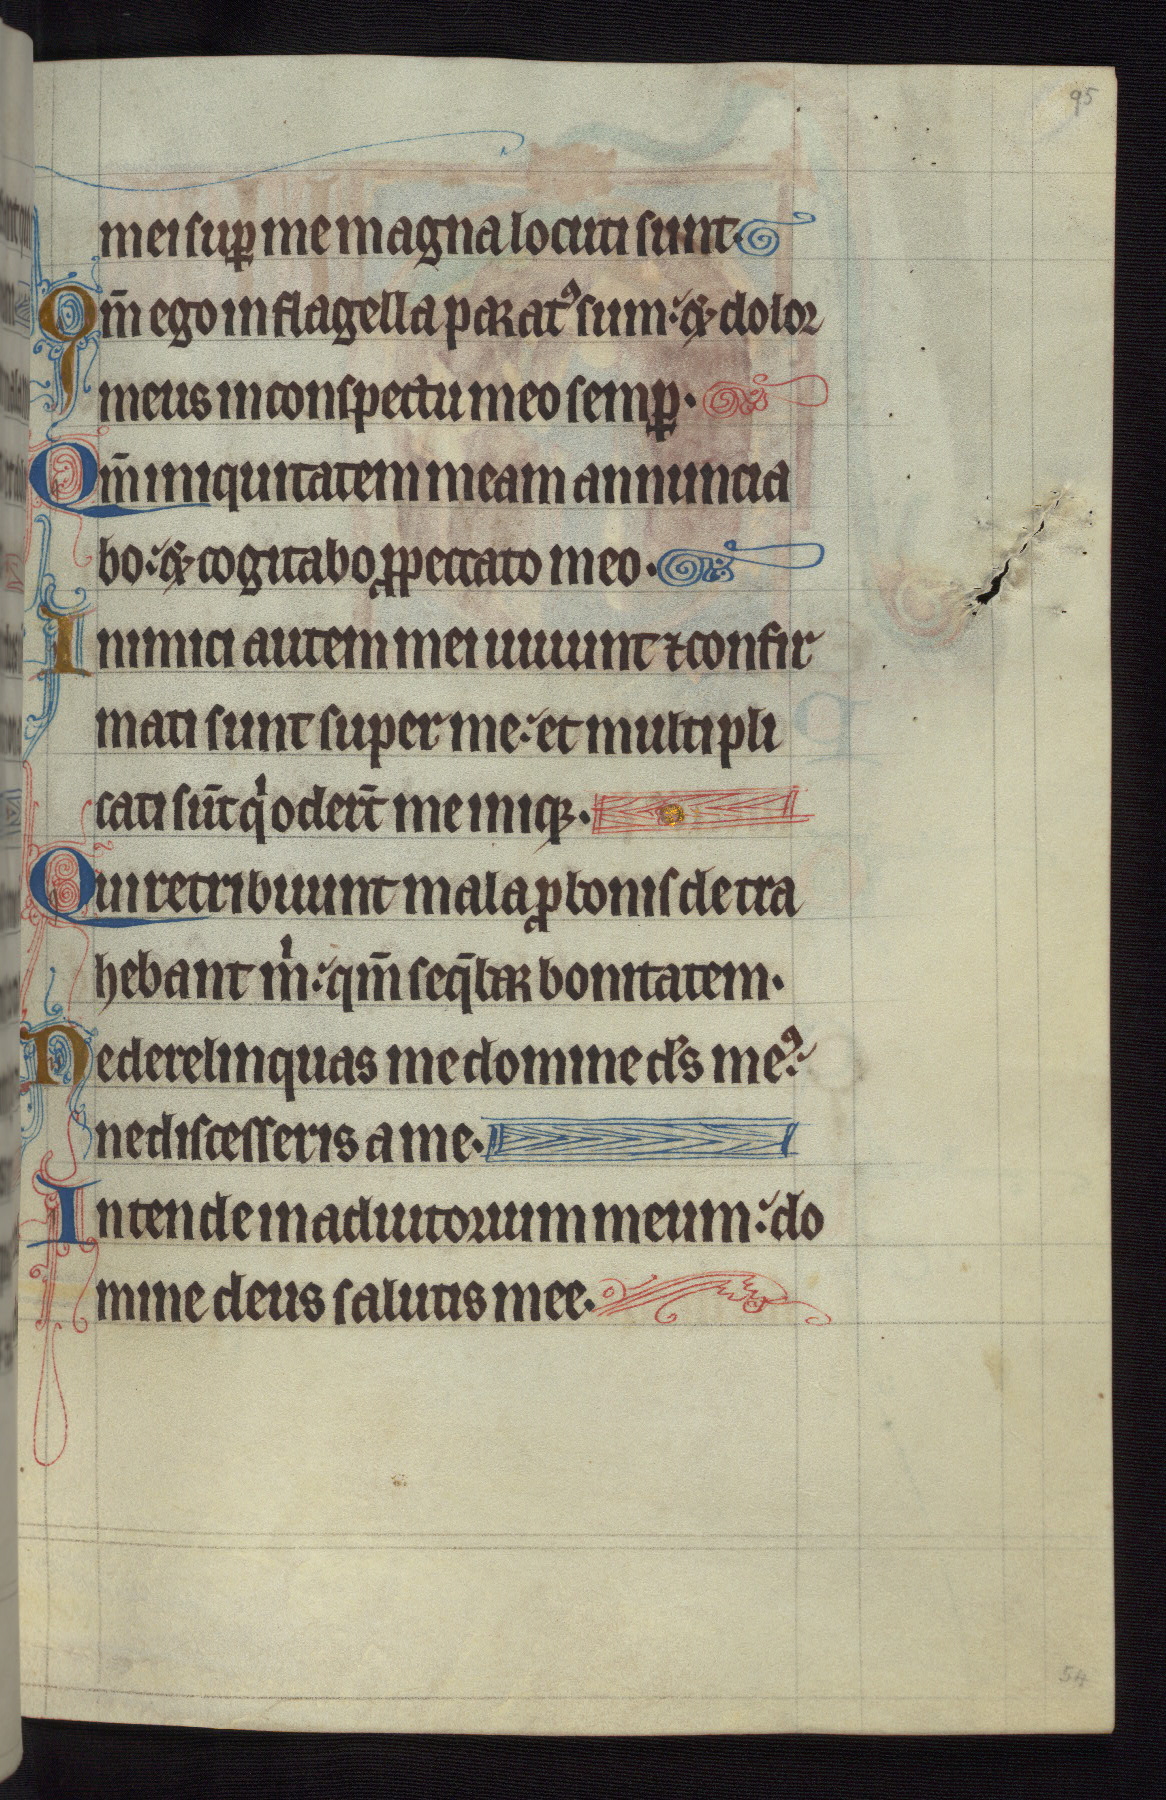 95
mei sup̱ me magna locuti sunt.
Qm̄ ego in flagella paratꝰ sum: ⁊ dolor
meus in conspectu meo semꝑ.
Qm̄ iniquitatem meam annuncia
bo: ⁊ cogitabo ꝓ peccato meo.
Inimici autem mei uiuunt ⁊ confir
mati sunt super me: et multipli
cati sūt qͥ oder̄t me iniqꝫ.
Qui retribuunt mala ꝓ bonis detra
hebant mͥ: qm̄ seq̄bar bonitatem.
Ne derelinquas me domine ds̄ meꝰ:
ne discesseris a me.
Intende in adiutorium meum: do
mine deus salutis mee.
54